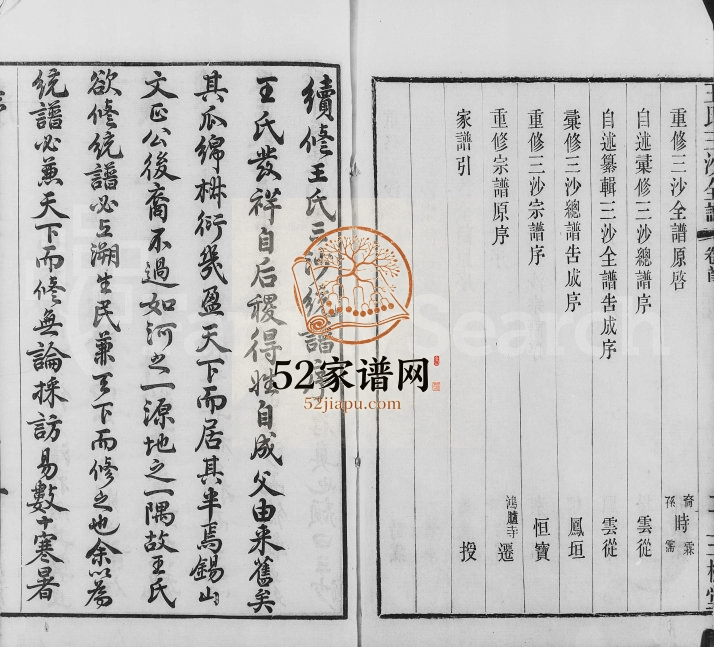 王氏三沙全譜 卷首 三槐堂
重修三沙全譜原啓 裔孫 時霖
自述彙修三沙總譜序 雲從
自述纂輯三沙全譜告成序 雲從
彙修三沙總譜告成序 鳳垣
重修三沙宗譜序 恒寶
重修宗譜原序 鴻臚寺 遷
家譜引 投
續修王氏三沙統譜序
王氏發祥自后稷得姓自成父由来舊矣
其瓜綿椒衍幾盈天下而居其半焉錫山
文正公後裔不過如河之一源地之一隅故王氏
欲修統譜必上溯生民兼天下而修之也余以爲
統譜必兼天下而修無論採訪易數十寒暑
52家谱网
52jiapu.com
Search